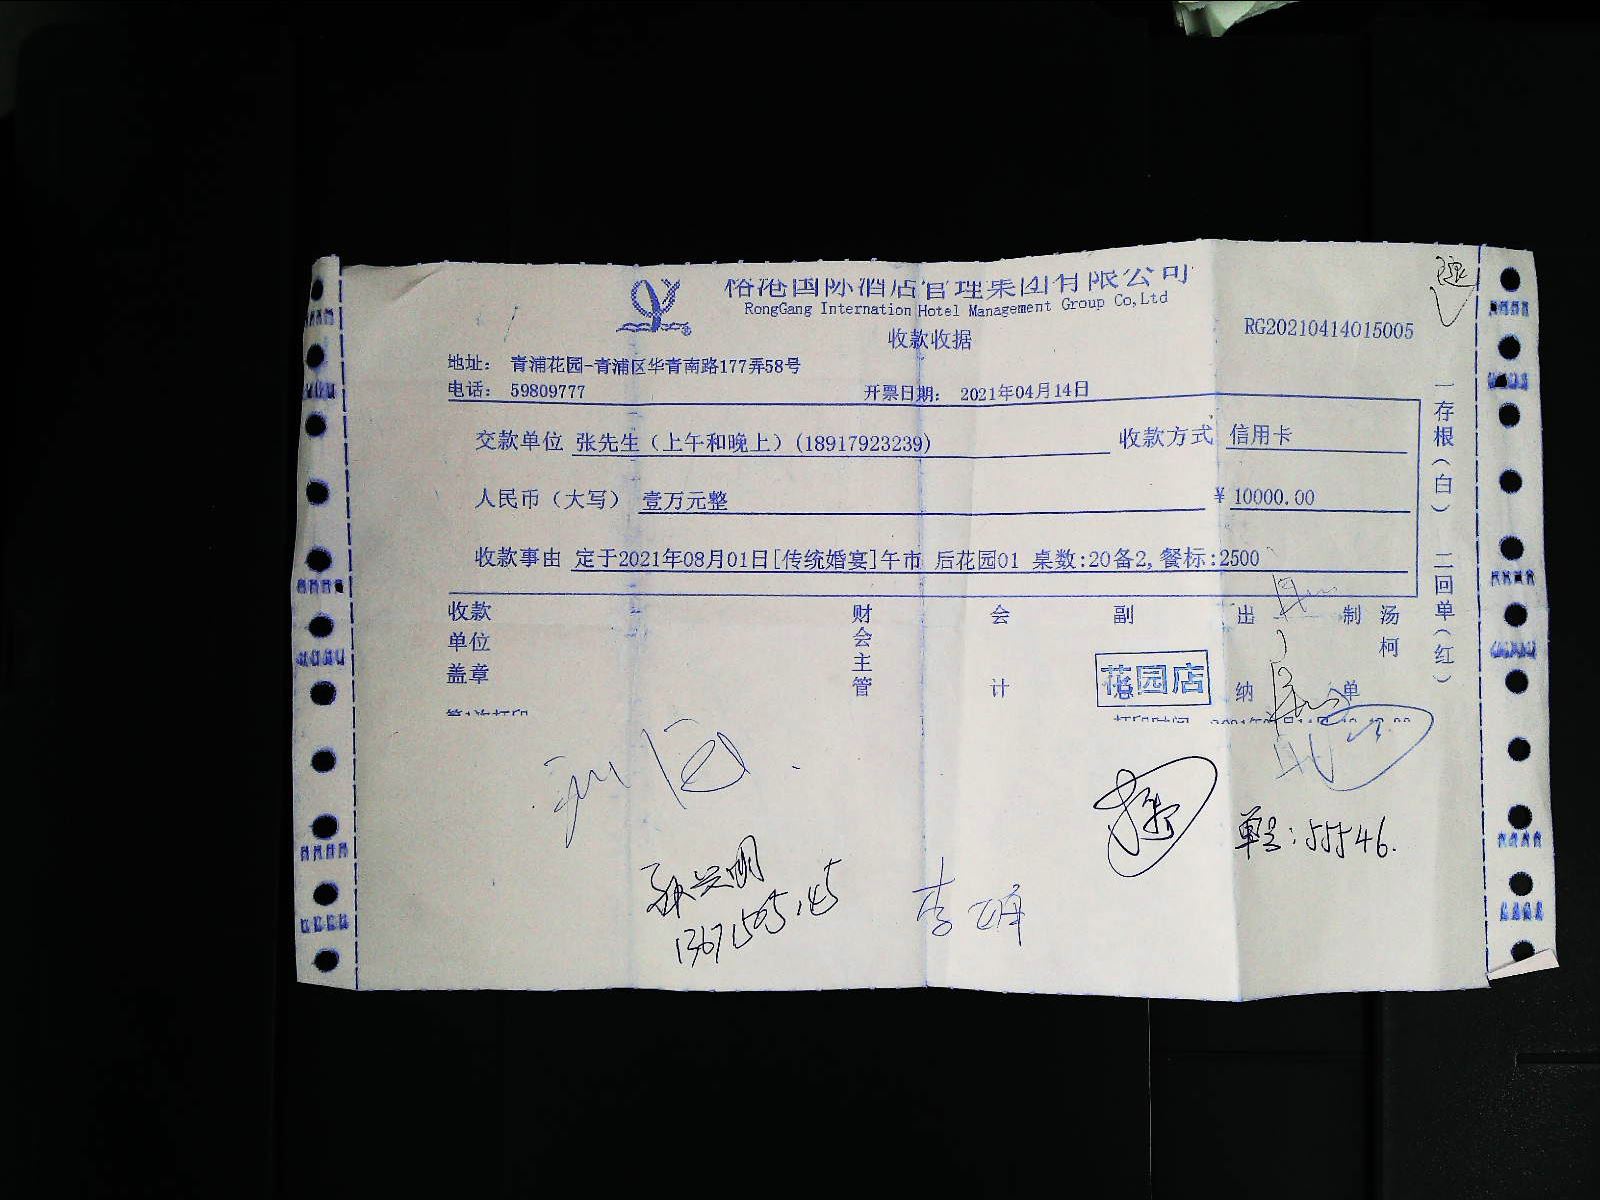 国际酒店管理集团有限公司
RongGang Internation Hotel Management Group Co,Ltd
收款收据
RG20210414015005
地址: 青浦花园-青浦区华青南路177弄58号
电话: 59809777 开票日期: 2021年04月14日
交款单位 张先生（上午和晚上）(18917923239) 收款方式 信用卡
人民币（大写） 壹万元整 ¥ 10000.00
收款事由 定于2021年08月01日[传统婚宴]午市 后花园01 桌数:20备2, 餐标:2500
收款单位盖章 财会主管 会计 副 出纳 制单 汤柯
花园店
一存根(白) 二回单(红)
单号:55546.